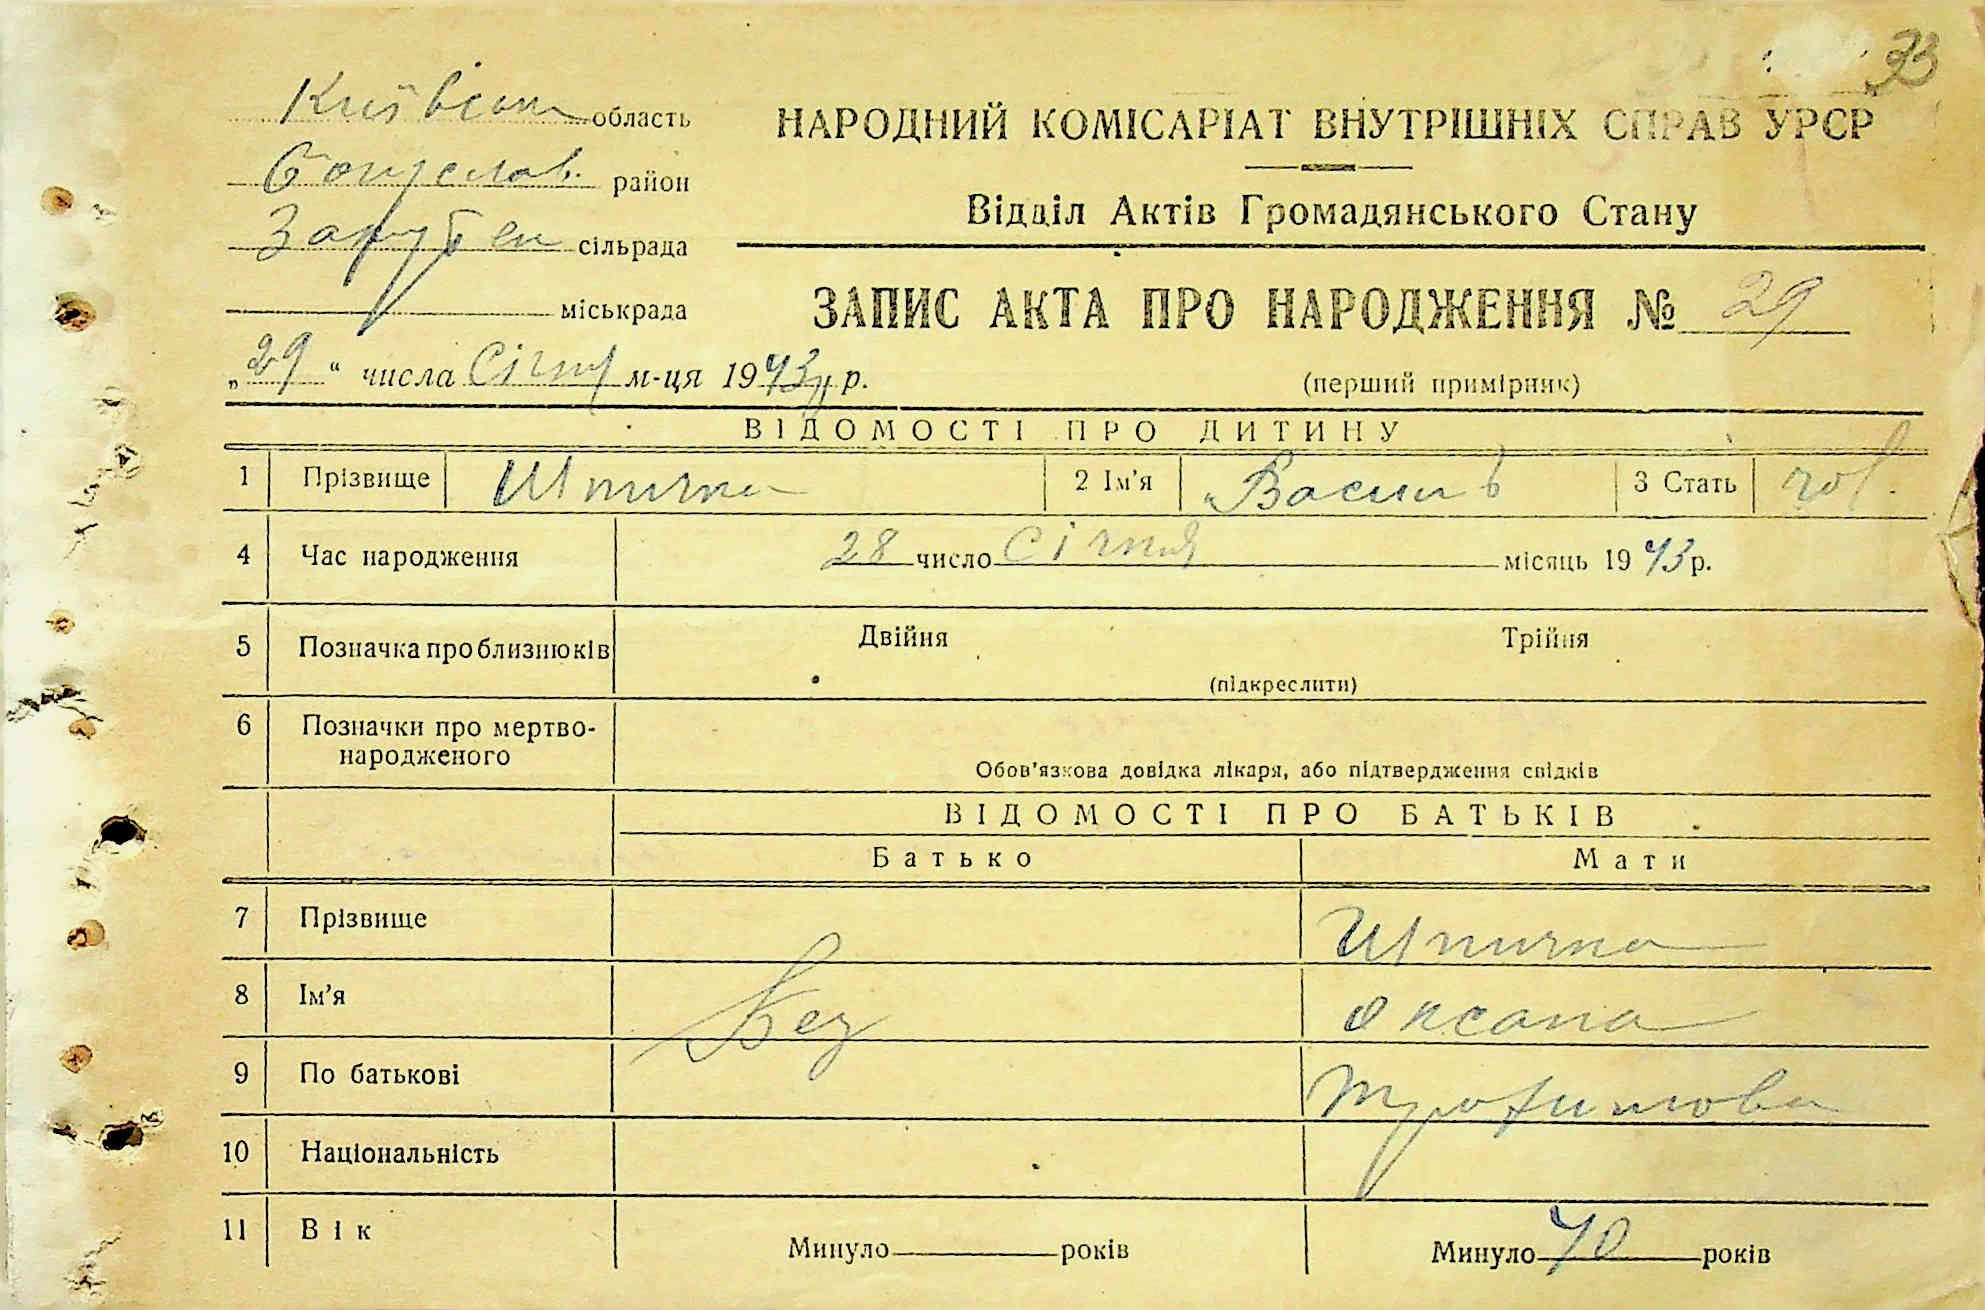 33
Київськ область
Богуслав. район
Заруб ен сільрада
міськрада
НАРОДНИЙ КОМІСАРІАТ ВНУТРІШНІХ СПРАВ УРСР
Відділ Актів Громадянського Стану
ЗАПИС АКТА ПРО НАРОДЖЕННЯ № 29
„29“ числа Січня м-ця 1943 р.
(перший примірник)
ВІДОМОСТІ ПРО ДИТИНУ
1 Прізвище Шпичка 2 Ім'я Василь 3 Стать чол.
4 Час народження 28 число Січня місяць 1943 р.
5 Позначка про близнюків Двійня Трійня
(підкреслити)
6 Позначки про мертво-
народженого
Обов'язкова довідка лікаря, або підтвердження свідків
ВІДОМОСТІ ПРО БАТЬКІВ
Батько Мати
7 Прізвище Шпичка
8 Ім'я Без Оксана
9 По батькові Трохимова
10 Національність
11 Вік Минуло років Минуло 40 років